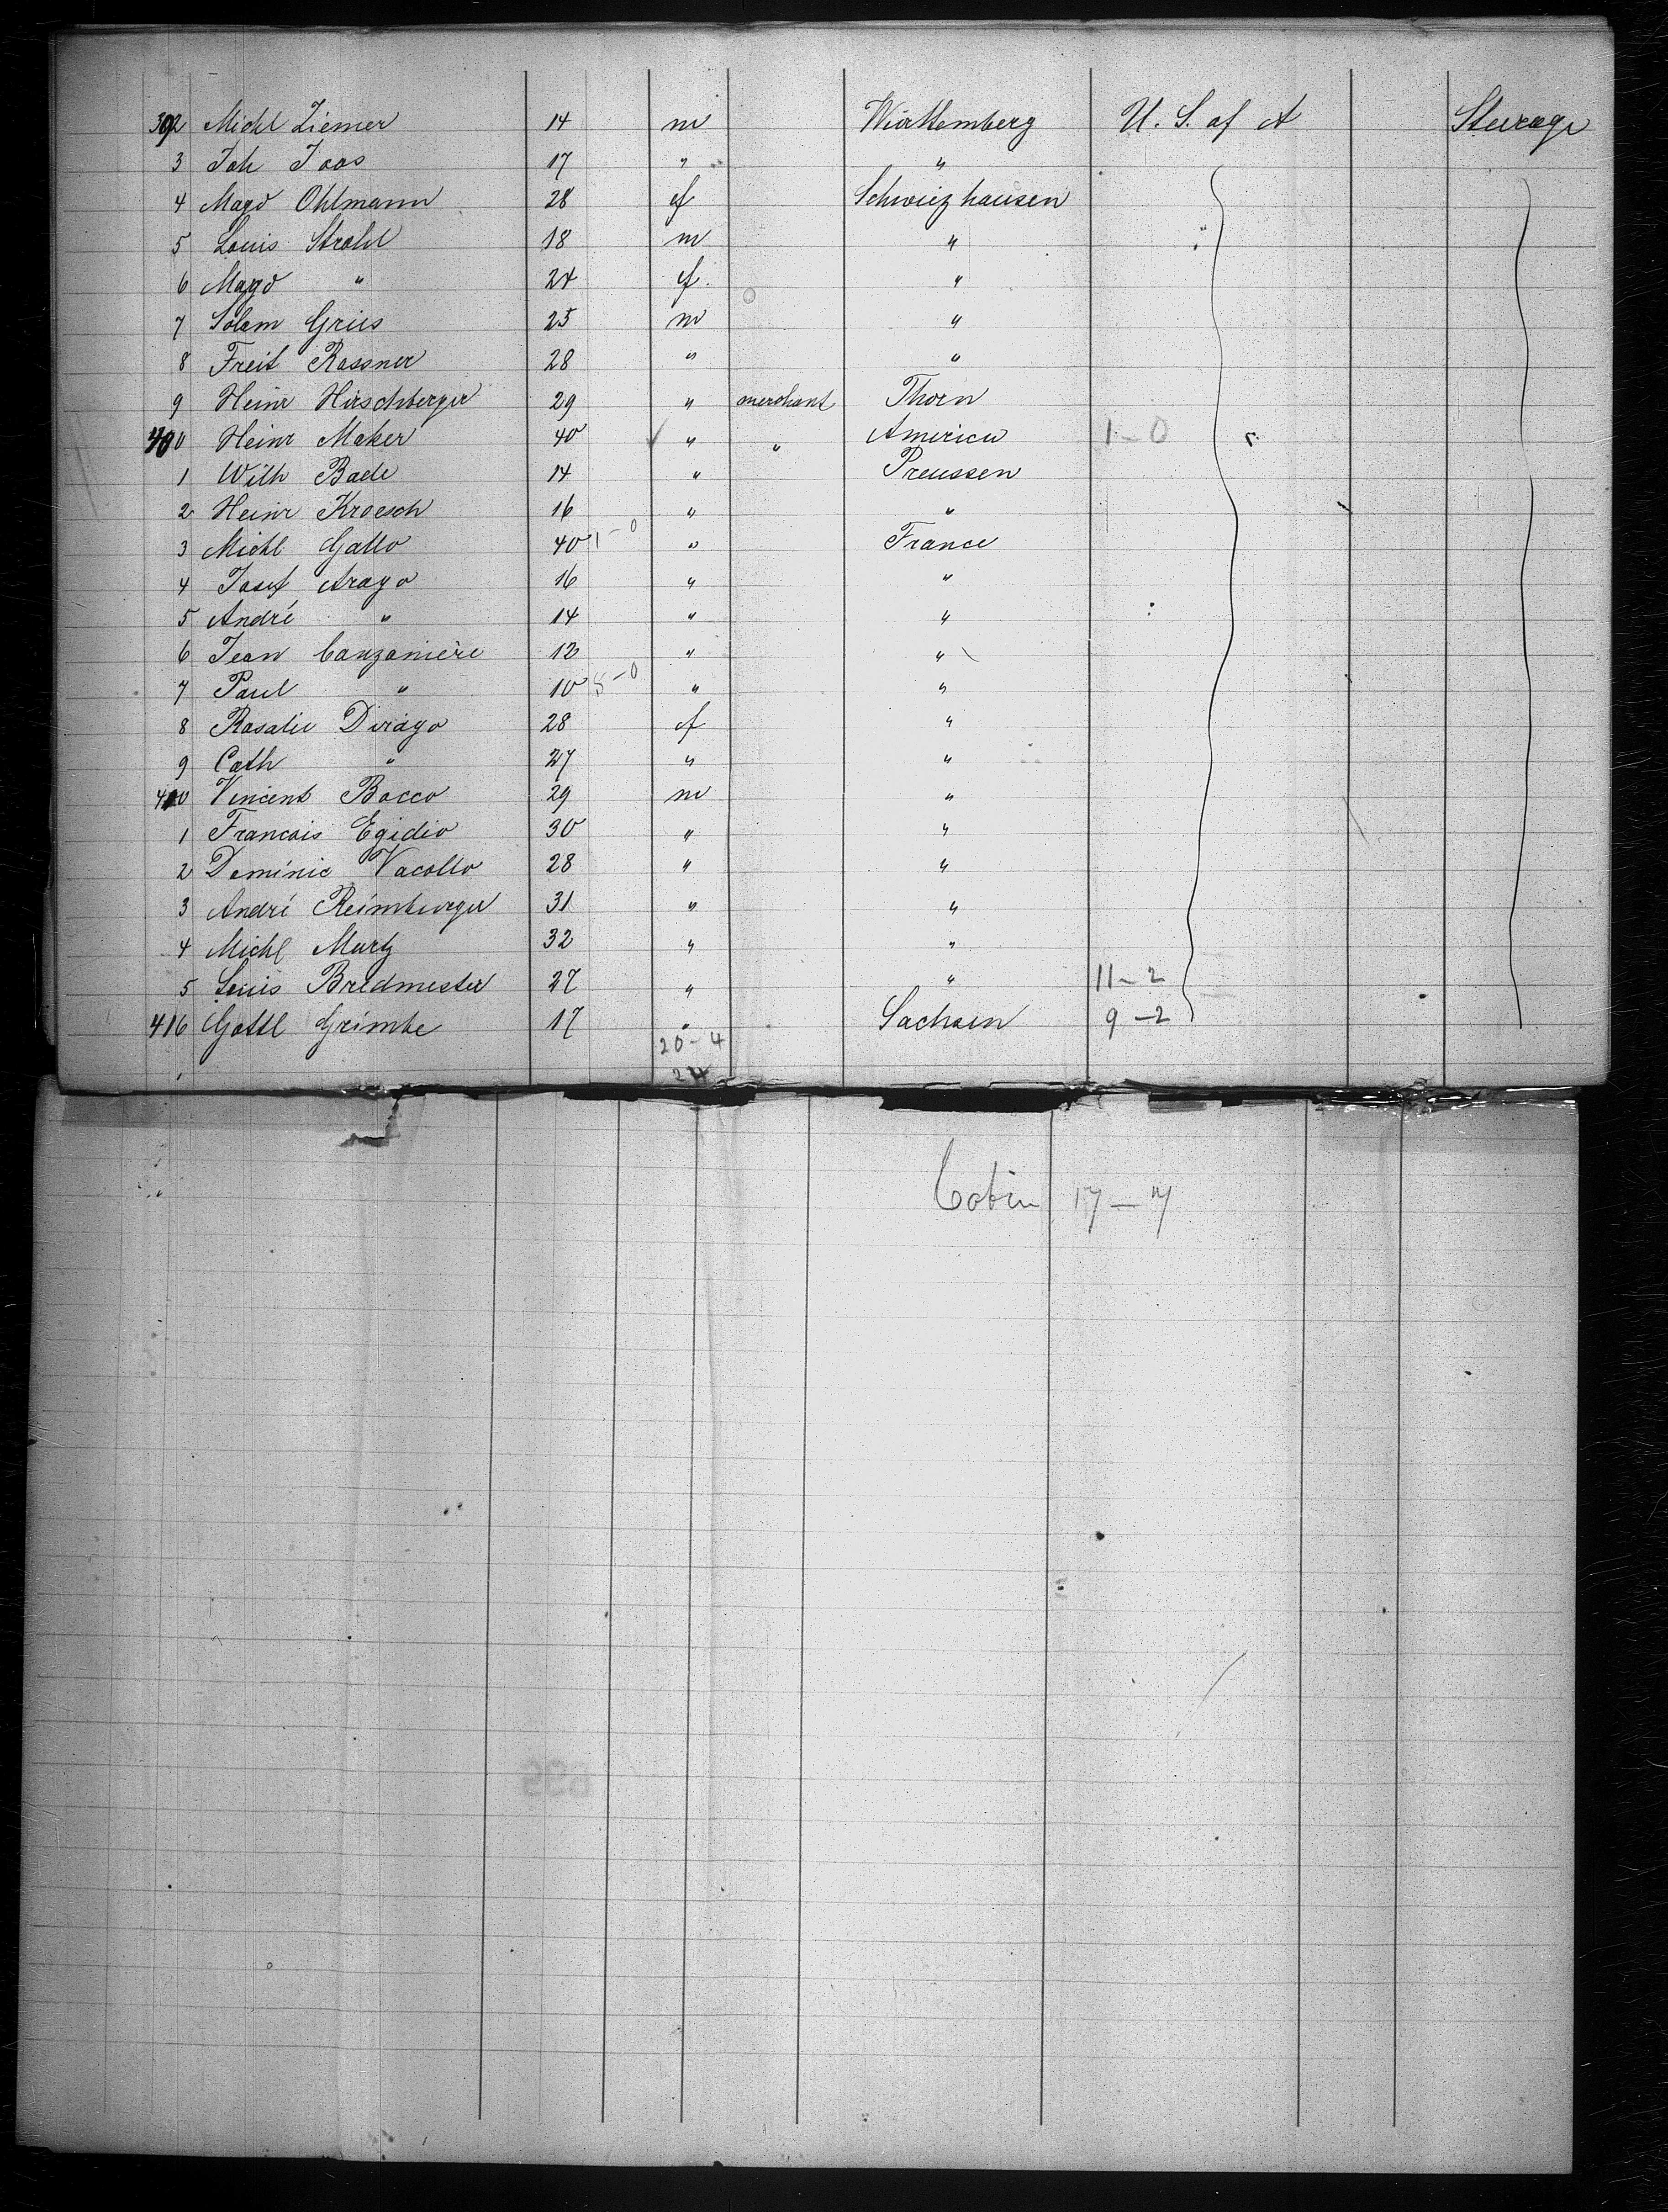 392 Michl Ziemer 14 m Württemberg U. S. of A Steerage
3 Joh Joos 17 " "
4 Magd Ohlmann 28 f Schweizhausen
5 Louis Strohl 18 m "
6 Magd " 24 f. "
7 Solem Gries 25 m "
8 Freit Rossner 28 " "
9 Heinr Hirschberger 29 " merchant Thorn
400 Heinr Maker 40 " " America 1-0
1 Wilh Bade 14 " Preussen
2 Heinr Kroesch 16 " "
3 Michl Gallo 40 1-0 " France
4 Josef Arago 16 " "
5 André " 14 " "
6 Jean Canzanière 12 " "
7 Paul " 10 5-0 " "
8 Rosalie Dirago 28 f "
9 Cath " 27 " "
410 Vincent Bocco 29 m "
1 Francois Egidio 30 " "
2 Dominic Vacollo 28 " "
3 André Reimburger 31 " "
4 Michl Murtz 32 " "
5 Louis Bredmester 27 " " 11-2
416 Gottl Grimbe 17 " Sachsen 9-2
20-4
24
Cabin 17-7